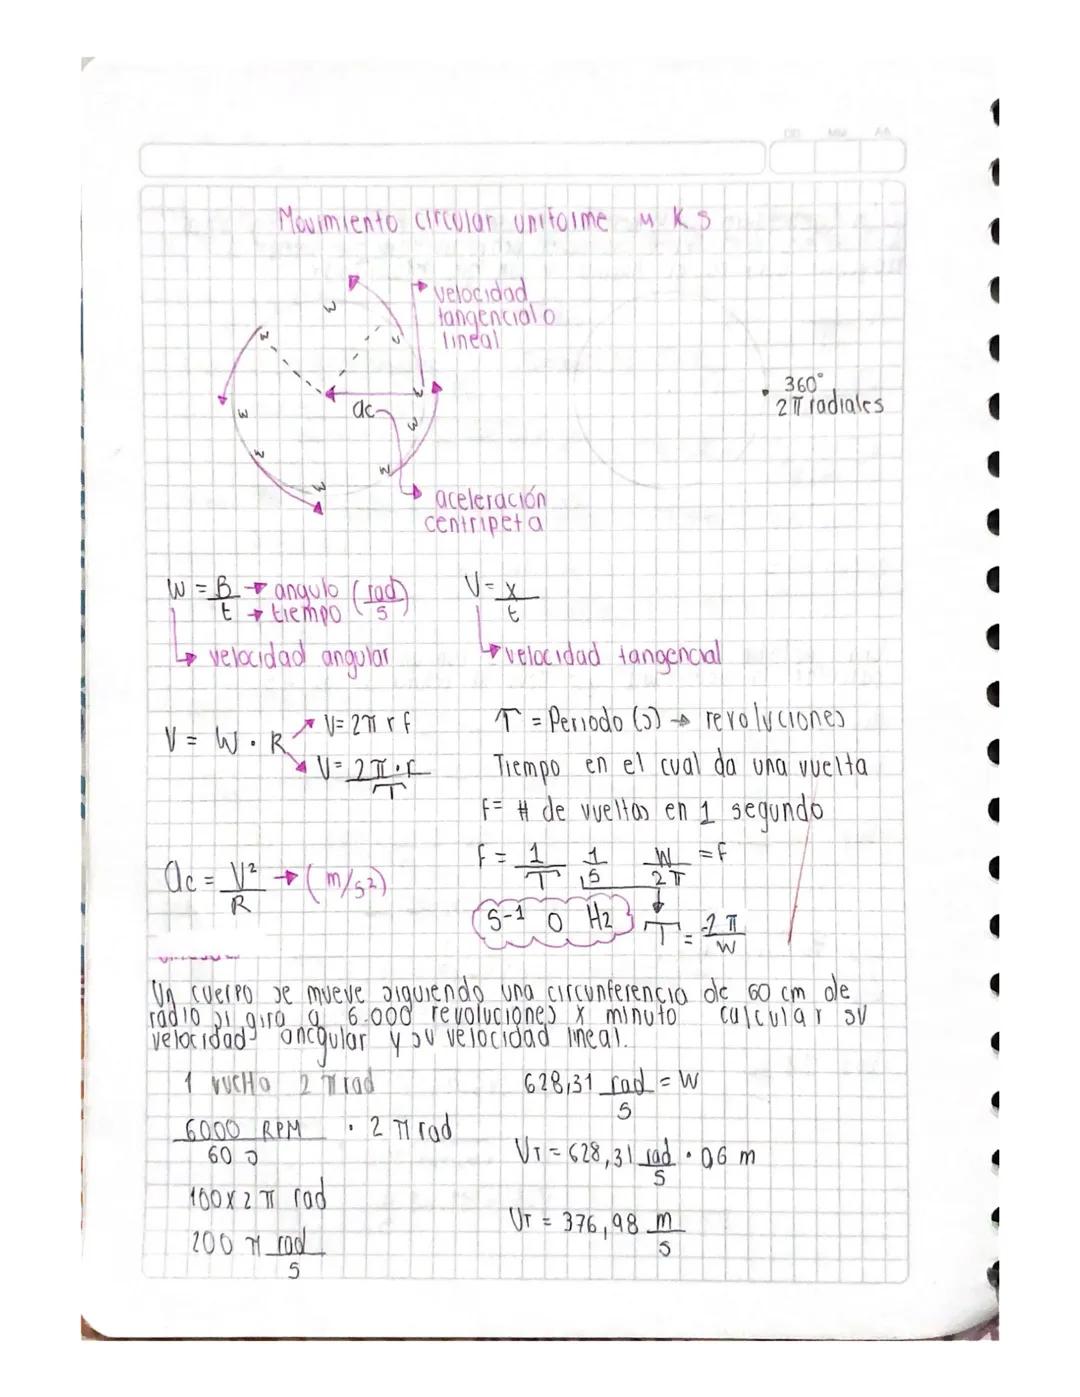 DD MM AA
Movimiento circular uniforme M K S
velocidad
tangencial o
lineal
ac
360°
2π radiales
aceleración
centripeta
W = B/t → angulo / tiempo (rad/s)
velocidad angular
V = x/t
velocidad tangencial
V = W · R
V = 2π r f
V = 2π · r / T
T = Periodo (s) → revoluciones
Tiempo en el cual da una vuelta
f = # de vueltas en 1 segundo
f = 1/T 1/s W/2π = f
ac = V²/R → (m/s²)
S-1 o Hz
T = 2π/W
Un cuerpo se mueve siguiendo una circunferencia de 60 cm de
radio si gira a 6.000 revoluciones x minuto calcular su
velocidad ancgular y su velocidad lineal.
1 vuelta 2π rad
6000 RPM / 60 s · 2π rad
100 x 2π rad
200 π rad/s
628,31 rad/s = W
VT = 628,31 rad/s · 0,6 m
VT = 376,98 m/s